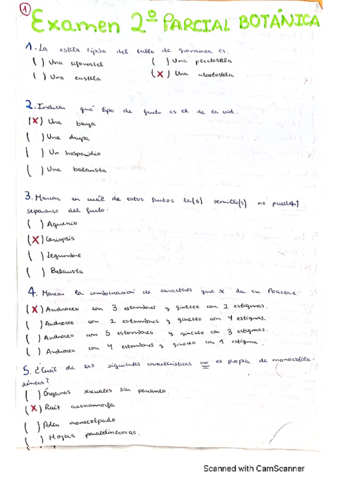 1
Examen 2º PARCIAL BOTÁNICA
1. La estela típica del tallo de gramínea es:
( ) Una sifonostela ( ) Una plectostela
( ) Una eustela (X) Una atactostela
2. Indicar qué tipo de fruto es el de la vid.
(X) Una baya
( ) Una drupa
( ) Un hesperidio
( ) Una balausta
3. Marcar en cuál de estos frutos la(s) semilla(s) no puede(n)
separarse del fruto:
( ) Aquenio
(X) Cariopsis
( ) Legumbre
( ) Balausta
4. Marcar la combinación de caracteres que se da en Poaceae.
(X) Androceo con 3 estambres y gineceo con 2 estigmas.
( ) Androceo con 2 estambres y gineceo con 4 estigmas.
( ) Androceo con 5 estambres y gineceo con 3 estigmas.
( ) Androceo con 4 estambres y gineceo con 1 estigma.
5. ¿Cuál de las siguientes características no es propia de monocotile-
dóneas?
( ) Órganos sexuales sin perianto.
(X) Raíz axonomorfa
( ) Polen monocolpado
( ) Hojas paralelinervias.
Scanned with CamScanner